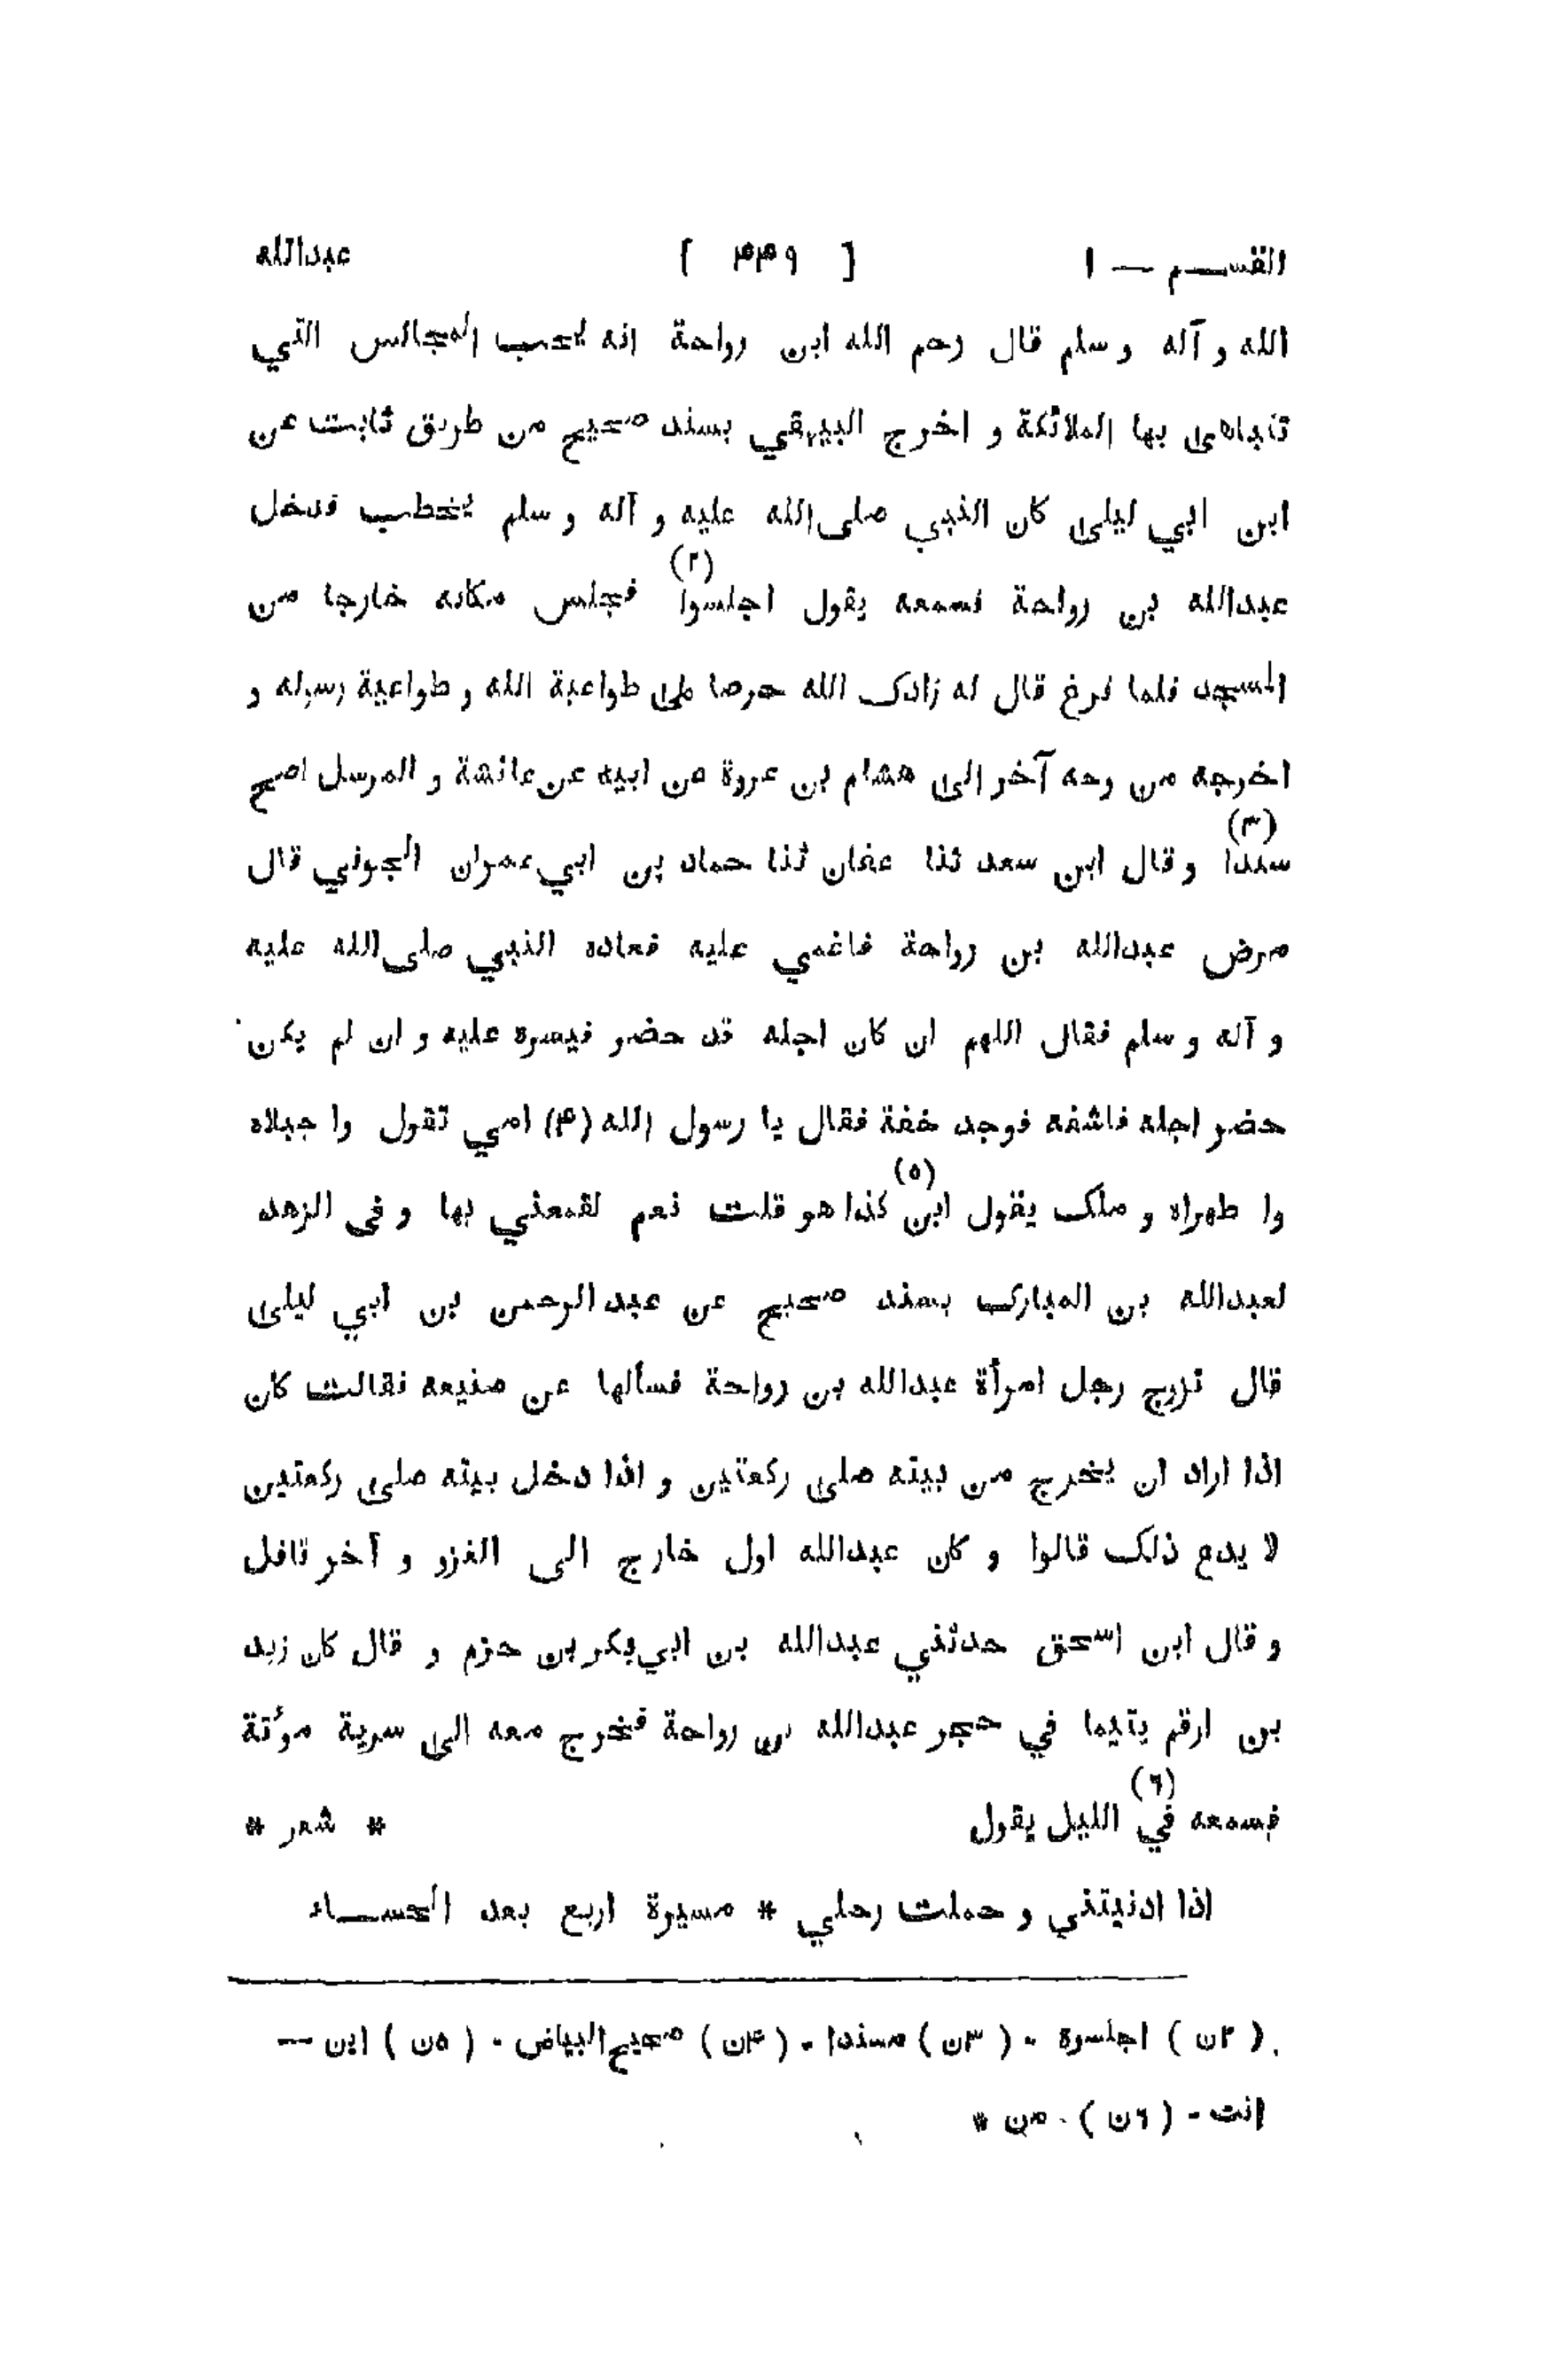 القسم — ١ [ ٧٤٩ ] عبدالله
الله و آله و سلم قال رحم الله ابن رواحة انه يحب المجالس التي
تتباهى بها الملائكة و اخرج البيهقي بسند صحيح من طريق ثابت عن
ابن ابي ليلى كان النبي صلى الله عليه و آله و سلم يخطب فدخل
عبدالله بن رواحة فسمعه يقول اجلسوا (٢) فجلس مكانه خارجا من
المسجد فلما فرغ قال له زادك الله حرصا على طواعية الله و طواعية رسوله و
اخرجه من وجه آخر الى هشام بن عروة عن ابيه عن عائشة و المرسل اصح
سندا (٣) و قال ابن سعد ثنا عفان ثنا حماد بن ابي عمران الجوني قال
مرض عبدالله بن رواحة فاغمي عليه فعاده النبي صلى الله عليه
و آله و سلم فقال اللهم ان كان اجله قد حضر فيسره عليه و ان لم يكن
حضر اجله فاشفه فوجد خفة فقال يا رسول الله (٤) امي تقول وا جبلاه
وا ظهراه و ملك يقول ابن (٥) كذا هو قلت نعم لقمعني بها و في الزهد
لعبدالله بن المبارك بسند صحيح عن عبد الرحمن بن ابي ليلى
قال تزوج رجل امرأة عبدالله بن رواحة فسألها عن صنيعه فقالت كان
اذا اراد ان يخرج من بيته صلى ركعتين و اذا دخل بيته صلى ركعتين
لا يدع ذلك قالوا و كان عبدالله اول خارج الى الغزو و آخر قافل
و قال ابن اسحق حدثني عبدالله بن ابي بكر بن حزم و قال كان زيد
بن ارقم يتيما في حجر عبدالله بن رواحة فخرج معه الى سرية مؤتة
فسمعه في (٦) الليل يقول * شعر *
اذا ادنيتني و حملت رحلي * مسيرة اربع بعد الحساء
( ٢ن ) اجلسوة - ( ٣ن ) مسندا - ( ٤ن ) صحيح البياض - ( ٥ن ) اين —
انت - ( ٦ن ) - من *